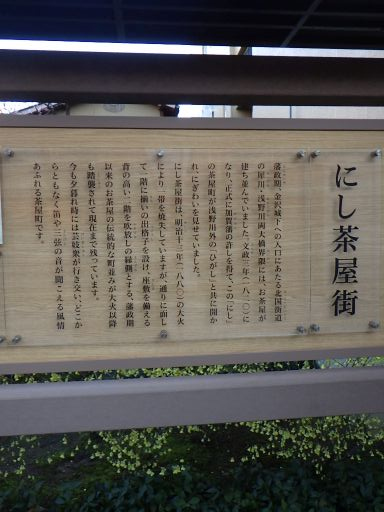 にし茶屋街
藩政期、金沢城下への入口にあたる北国街道
の犀川・浅野川両大橋界隈には、お茶屋が
建ち並んでいました。文政三年(一八二〇)に
なり、正式に加賀藩の許しを得て、この「にし」
の茶屋町が浅野川外の「ひがし」と共に開か
れ、にぎわいを見せていました。
にし茶屋街は、明治十三年(一八八〇)の大火
により一帯を焼失していますが、通りに面し
て、一階に揃いの出格子を設け、座敷を備える
背の高い二階を吹放しの縁側とする、藩政期
以来のお茶屋の伝統的な町並みが大火以降
も踏襲されて現在まで残っています。
今も夕暮れ時には芸妓衆が行き交い、どこか
らともなく笛や三弦の音が聞こえる風情
あふれる茶屋町です。